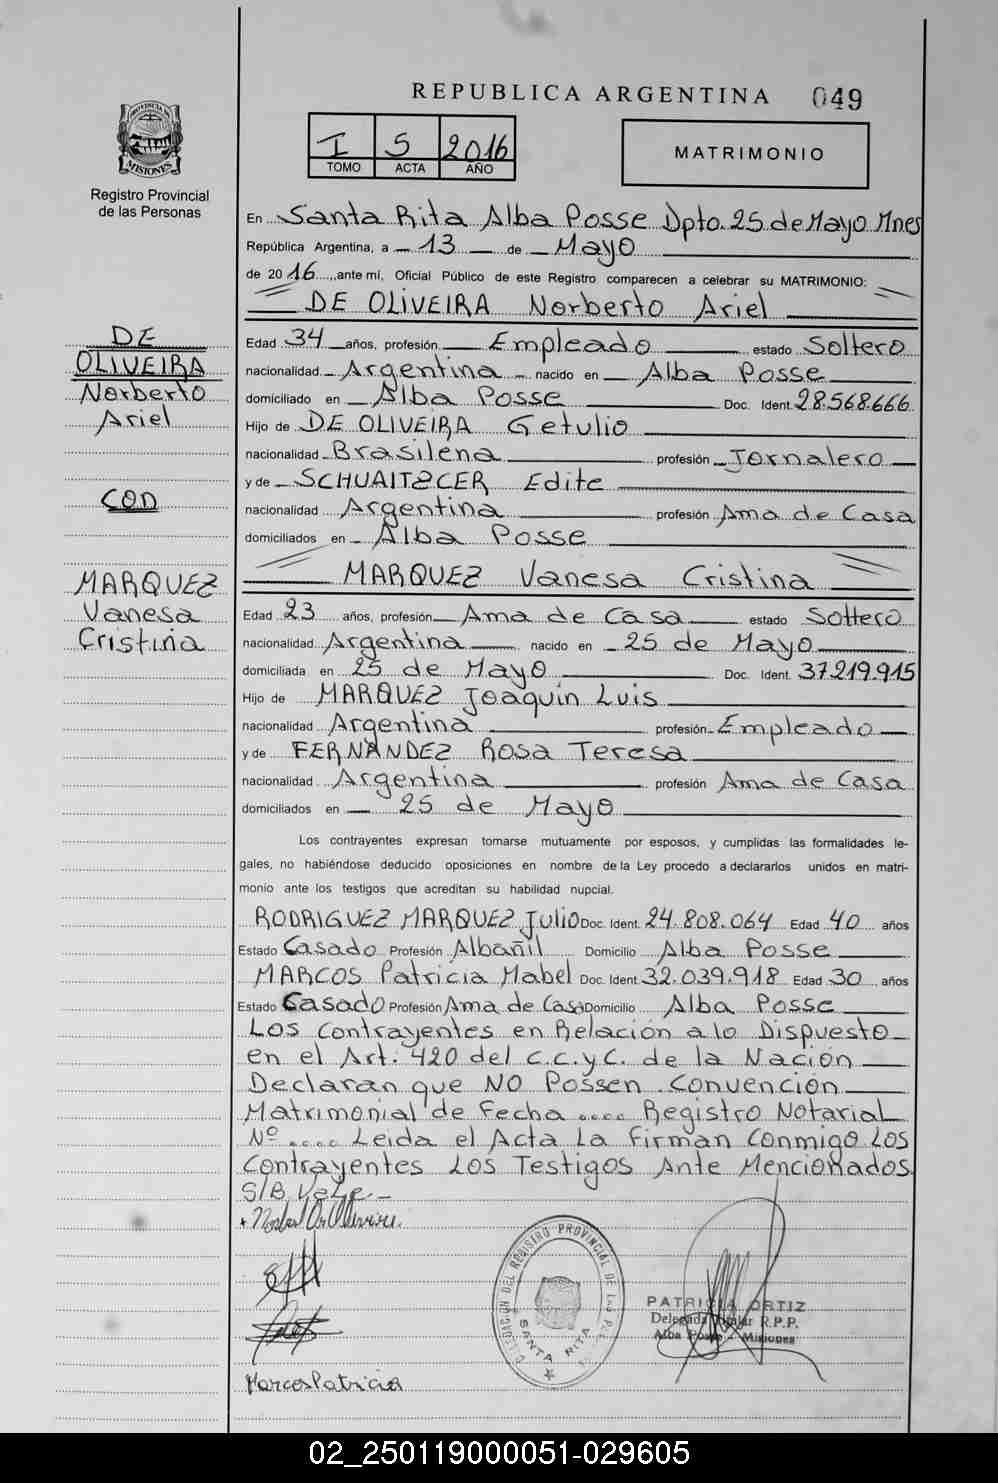 REPUBLICA ARGENTINA 049
PROVINCIA DE
MISIONES
Registro Provincial
de las Personas
I 5 2016
TOMO ACTA AÑO
MATRIMONIO
En Santa Rita Alba Posse Dpto. 25 de Mayo Mnes
República Argentina, a 13 de Mayo
de 2016, ante mí, Oficial Público de este Registro comparecen a celebrar su MATRIMONIO:
DE OLIVEIRA Norberto Ariel
DE
OLIVEIRA
Norberto
Ariel
CON
MARQUEZ
Vanesa
Cristina
Edad 34 años, profesión Empleado estado Soltero
nacionalidad Argentina nacido en Alba Posse
domiciliado en Alba Posse Doc. Ident. 28.568.666
Hijo de DE OLIVEIRA Getulio
nacionalidad Brasilena profesión Jornalero
y de SCHUAITZCER Edite
nacionalidad Argentina profesión Ama de Casa
domiciliados en Alba Posse
MARQUEZ Vanesa Cristina
Edad 23 años, profesión Ama de Casa estado Soltero
nacionalidad Argentina nacido en 25 de Mayo
domiciliada en 25 de Mayo Doc. Ident. 37.219.915
Hijo de MARQUEZ Joaquin Luis
nacionalidad Argentina profesión Empleado
y de FERNANDEZ Rosa Teresa
nacionalidad Argentina profesión Ama de Casa
domiciliados en 25 de Mayo
Los contrayentes expresan tomarse mutuamente por esposos, y cumplidas las formalidades le-
gales, no habiéndose deducido oposiciones en nombre de la Ley procedo a declararlos unidos en matri-
monio ante los testigos que acreditan su habilidad nupcial.
RODRIGUEZ MARQUEZ Julio Doc. Ident. 24.808.064 Edad 40 años
Estado Casado Profesión Albañil Domicilio Alba Posse
MARCOS Patricia Mabel Doc. Ident. 32.039.918 Edad 30 años
Estado Casado Profesión Ama de Casa Domicilio Alba Posse
Los Contrayentes en Relación a lo Dispuesto
en el Art. 420 del C.C.yC. de la Nación
Declaran que NO Possen Convención
Matrimonial de Fecha .... Registro Notarial
Nº .... Leida el Acta La Firman Conmigo Los
Contrayentes Los Testigos Ante Mencionados
S/B Vale
Marcos Patricia
DELEGACION DEL REGISTRO PROVINCIAL DE LAS
SANTA RITA
PATRICIA ORTIZ
Delegada Titular R.P.P.
Alba Posse - Misiones
02_250119000051-029605